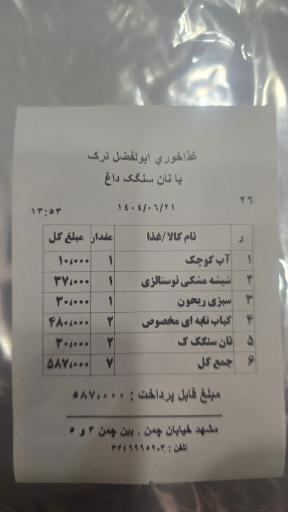 غذاخوري ابوالفضل ترک
با نان سنگک داغ
۲۶
۱۳:۵۳ ۱۴۰۴/۰۶/۲۱
ر نام کالا/غذا مقدار مبلغ کل
۱ آب کوچک ۱ ۱۰،۰۰۰
۲ شیشه مشکی نوستالژی ۱ ۳۷،۰۰۰
۳ سبزی ریحون ۱ ۳۰،۰۰۰
۴ کباب تابه ای مخصوص ۲ ۴۸۰،۰۰۰
۵ نان سنگک ک ۲ ۳۰،۰۰۰
۶ جمع کل ۷ ۵۸۷،۰۰۰
مبلغ قابل پرداخت : ۵۸۷،۰۰۰
مشهد خیابان چمن . بین چمن ۳ و ۵
تلفن : ۳-۳۳۴۹۹۹۵۲